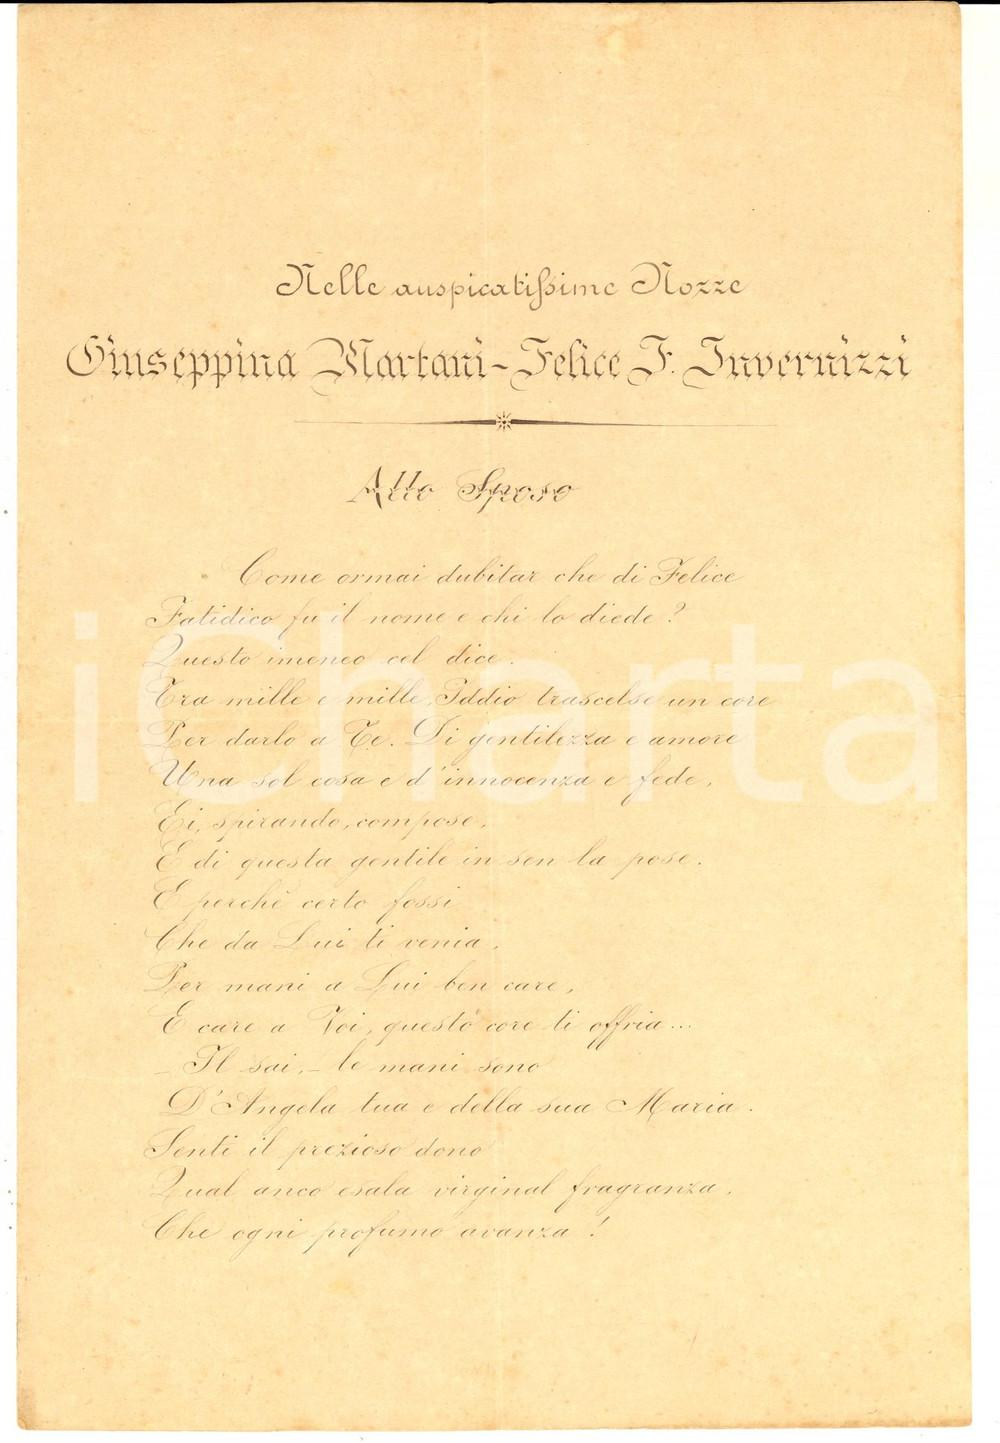 Nelle auspicatissime Nozze
Giuseppina Martani - Felice F. Invernizzi
Allo Sposo
Come ormai dubitar che di Felice
Fatidico fu il nome e chi lo diede?
Questo imeneo cel dice.
Tra mille e mille, Iddio trascelse un core
Per darlo a Te. Di gentilezza e amore
Una sol cosa e d'innocenza e fede,
Ei, spirando, compose,
E di questa gentile in sen la pose.
E perchè certo fossi
Che da Lui ti venia,
Per mani a Lui ben care,
E care a Voi, questo core ti offria...
– Il sai, – le mani sono
D'Angela tua e della sua Maria.
Senti il prezioso dono
Qual anco esala virginal fragranza,
Che ogni profumo avanza!
iCharta